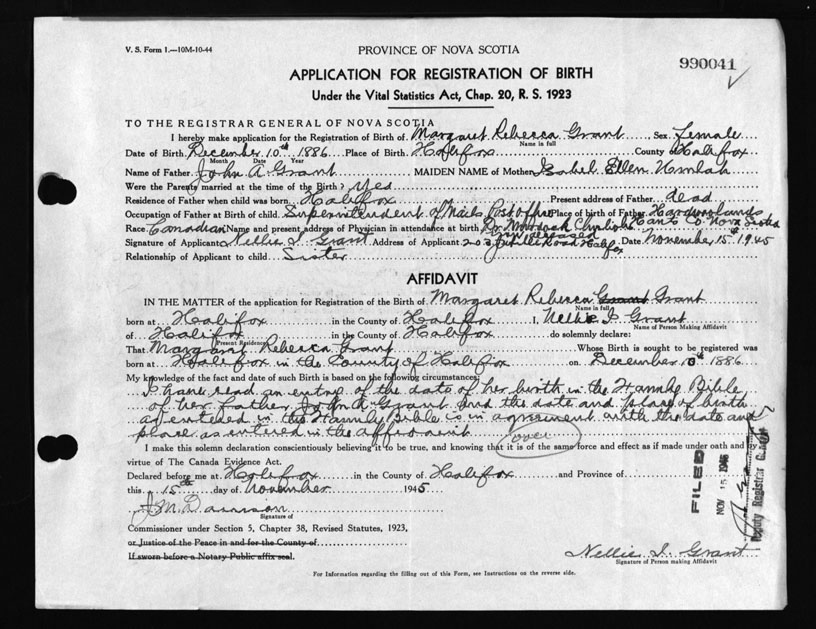 V. S. Form 1.—10M-10-44
PROVINCE OF NOVA SCOTIA
990041
APPLICATION FOR REGISTRATION OF BIRTH
Under the Vital Statistics Act, Chap. 20, R. S. 1923
TO THE REGISTRAR GENERAL OF NOVA SCOTIA
I hereby make application for the Registration of Birth of Margaret Rebecca Grant Sex Female
Name in full
Date of Birth December 10th 1886 Place of Birth Halifax County Halifax
Month Date Year
Name of Father John A. Grant MAIDEN NAME of Mother Isabel Ellen
Were the Parents married at the time of the Birth? Yes
Residence of Father when child was born Halifax Present address of Father dead
Occupation of Father at Birth of child Superintendent of Mails Post office Place of birth of Father Hardwoodlands
Hants Co. Nova Scotia
Race Canadian Name and present address of Physician in attendance at birth Dr. Murdoch
now deceased
Signature of Applicant Nellie I. Grant Address of Applicant 203 Jubilee Road Halifax Date November 15th 1945
Relationship of Applicant to child Sister
AFFIDAVIT
IN THE MATTER of the application for Registration of the Birth of Margaret Rebecca Grant Grant
Name in full
born at Halifax in the County of Halifax I, Nellie I. Grant
Name of Person Making Affidavit
of Halifax in the County of Halifax do solemnly declare:
Present Residence
That Margaret Rebecca Grant Whose Birth is sought to be registered was
born at Halifax in the County of Halifax on December 10th 1886
My knowledge of the fact and date of such Birth is based on the following circumstances:
I have read an entry of the date of her birth in the Family Bible
of her father John A. Grant and the date and place of birth
as entered in the Family Bible is in agreement with the date and
place as entered in the affidavit
over
I make this solemn declaration conscientiously believing it to be true, and knowing that it is of the same force and effect as if made under oath and by
virtue of The Canada Evidence Act.
Declared before me at Halifax in the County of Halifax and Province of
this 15th day of November 1945
Signature of
Commissioner under Section 5, Chapter 38, Revised Statutes, 1923,
or Justice of the Peace in and for the County of
If sworn before a Notary Public affix seal.
FILED
NOV 15 1945
Deputy Registrar General
Nellie I. Grant
Signature of Person making Affidavit
For Information regarding the filling out of this Form, see Instructions on the reverse side.